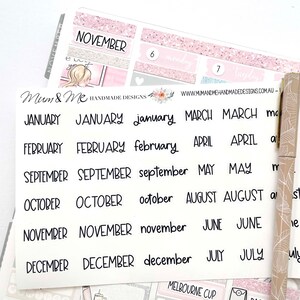 NOVEMBER
6
7
Mum & Me HANDMADE DESIGNS WWW.MUMANDMEHANDMADEDESIGNS.COM.AU
JANUARY JANUARY january MARCH MARCH
FEBRUARY FEBRUARY february APRIL APRIL
SEPTEMBER SEPTEMBER september MAY MAY
OCTOBER OCTOBER october AUGUST AUGUST
NOVEMBER NOVEMBER november JUNE JUNE
DECEMBER DECEMBER december JULY JULY
MELBOURNE CUP